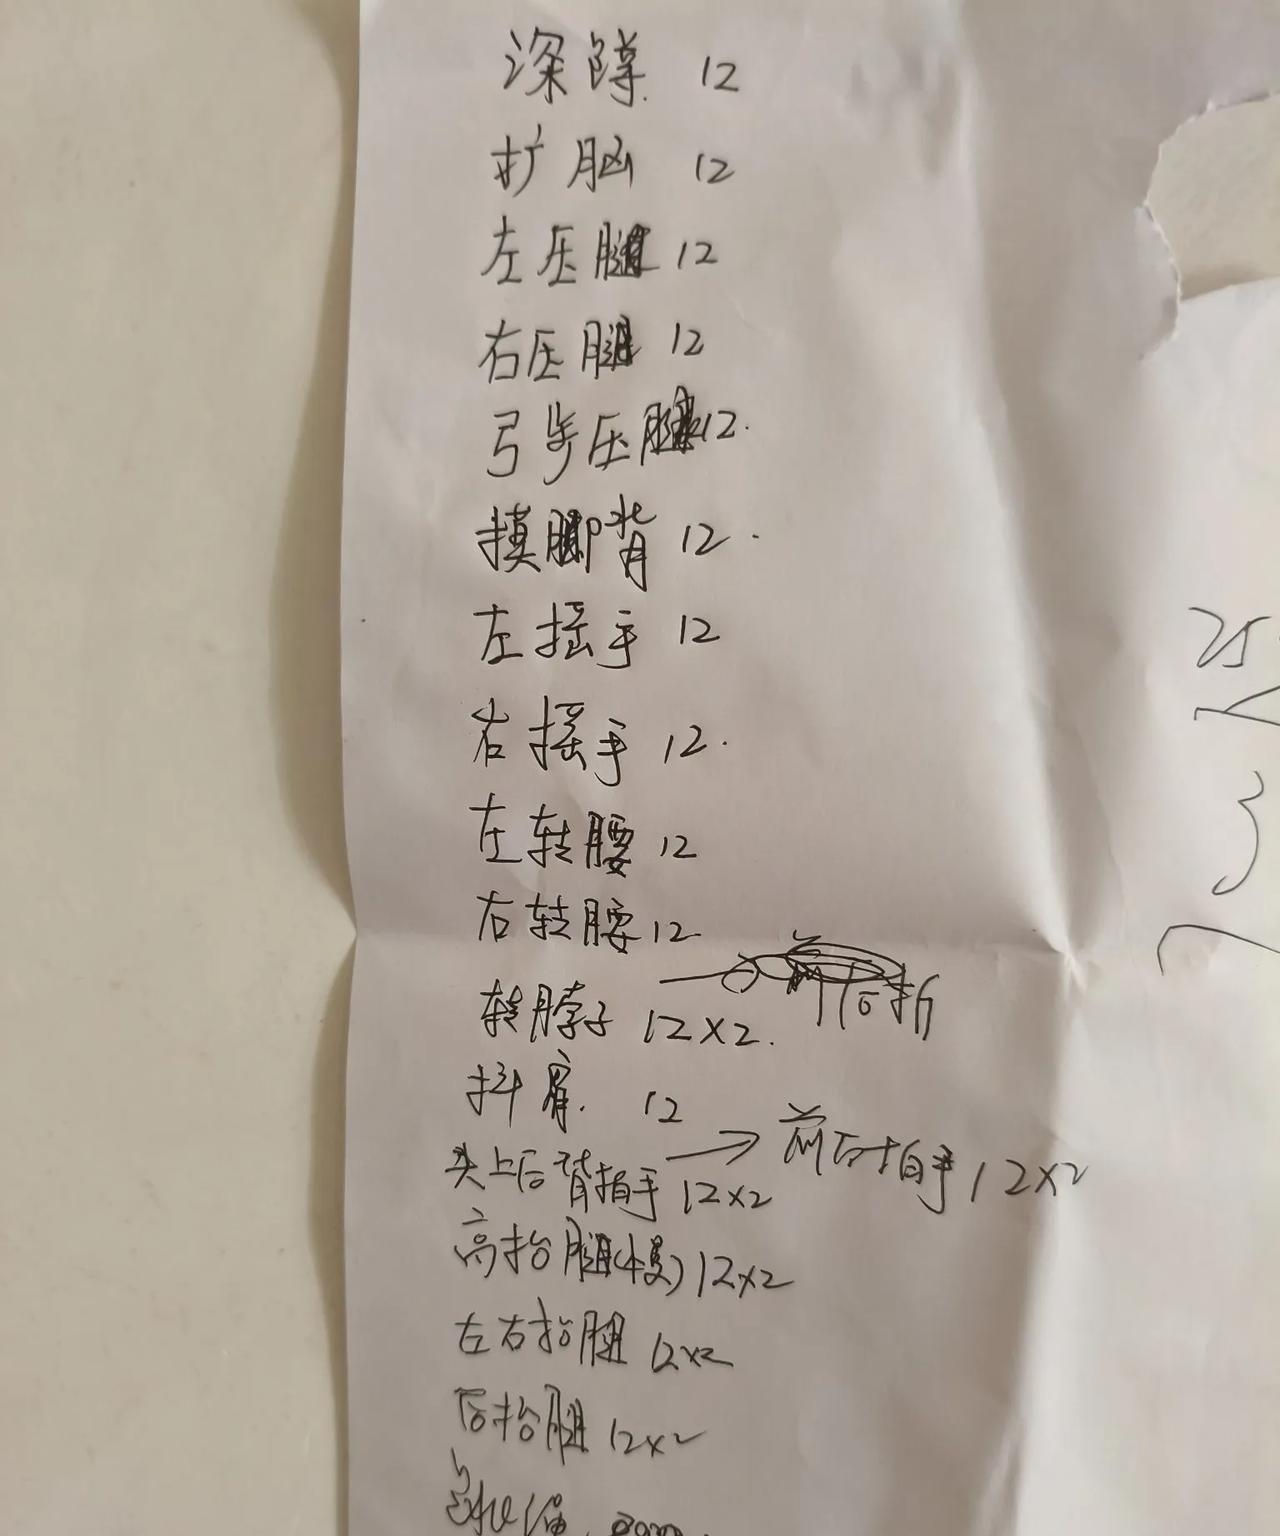 深蹲 12
扩胸 12
左压腿 12
右压腿 12
弓步压腿 12.
摸脚背 12.
左摇手 12
右摇手 12.
左转腰 12
右转腰 12
转脖子 12×2.
抖肩. 12
头上后背拍手 12×2 → 前后拍手 12×2
高抬腿(慢) 12×2
左右抬腿 12×2
后抬腿 12×2
跳绳